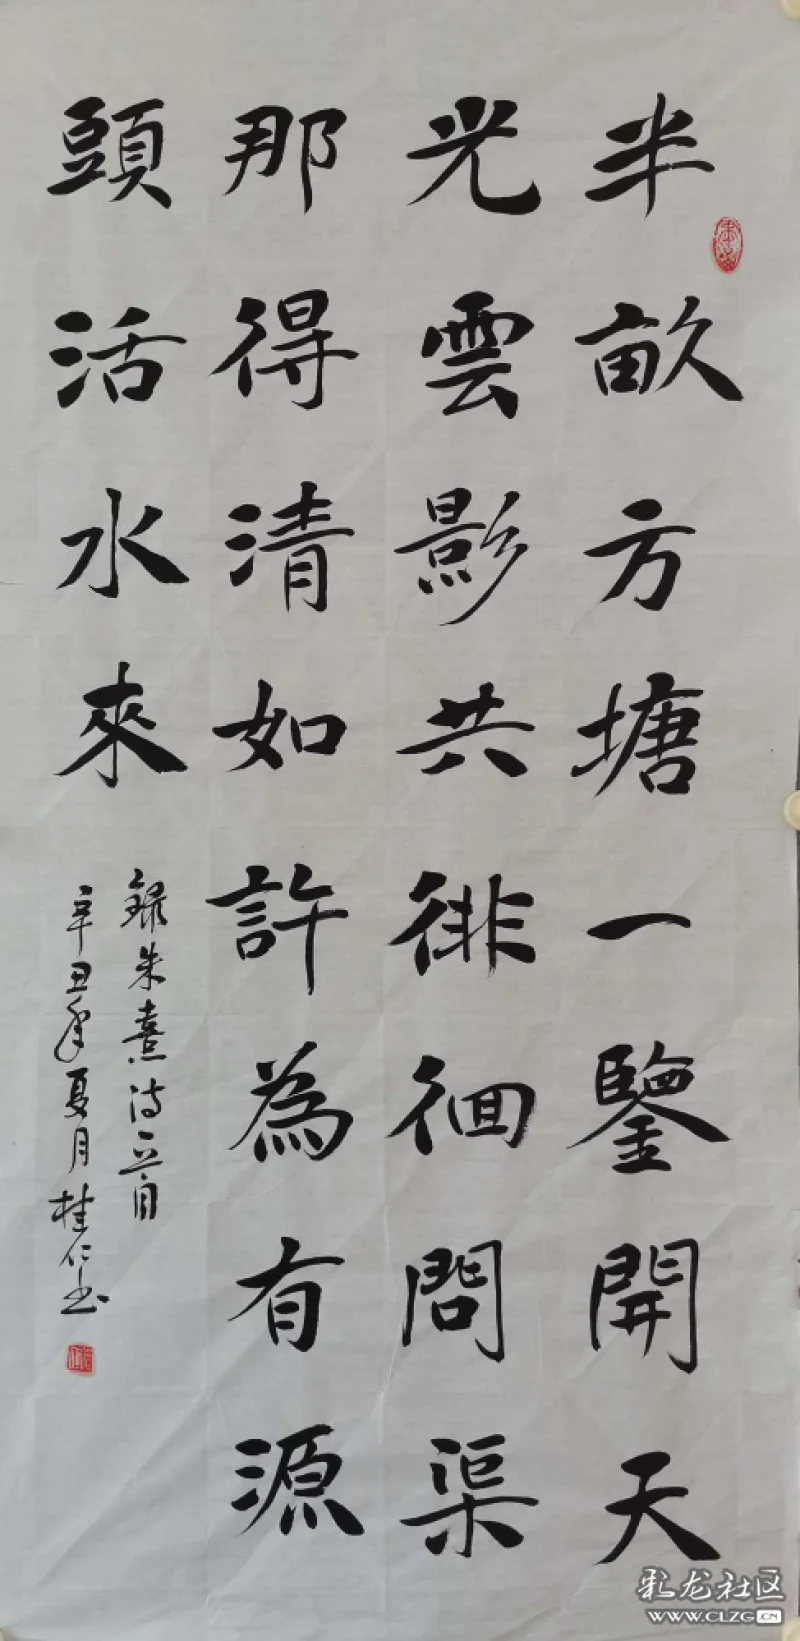 半畝方塘一鑒開天
光雲影共徘徊問渠
那得清如許為有源
頭活水來
録朱熹诗一首
辛丑年夏月桂仁书
彩龙社区
WWW.CLZG.CN